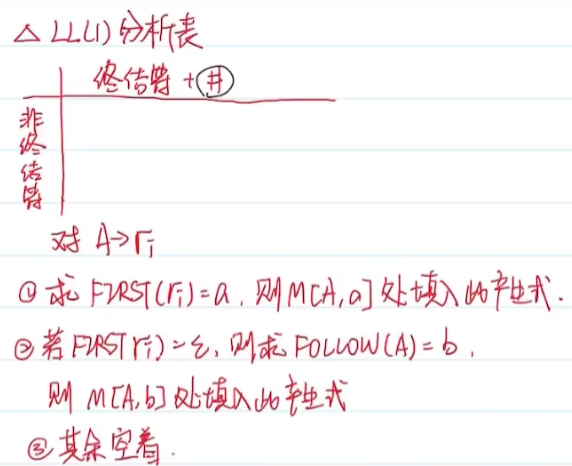 △ LL(1)分析表
终结符 + #
非终结符
对 A→ri
① 求 FIRST(ri)=a, 则M[A,a]处填入此产生式.
② 若FIRST(ri)=ε, 则求FOLLOW(A)=b,
则 M[A,b]处填入此产生式
③ 其余空着.